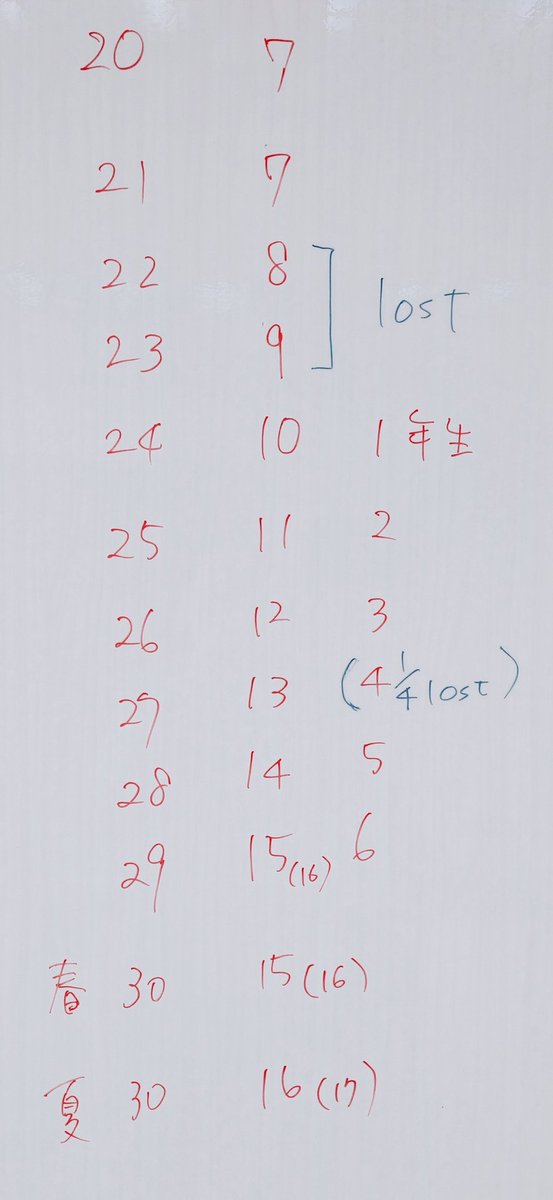 20 7
21 7
22 8
23 9 ] lost
24 10 1年生
25 11 2
26 12 3
27 13 (4 1/4 lost)
28 14 5
29 15(16) 6
春 30 15(16)
夏 30 16(17)